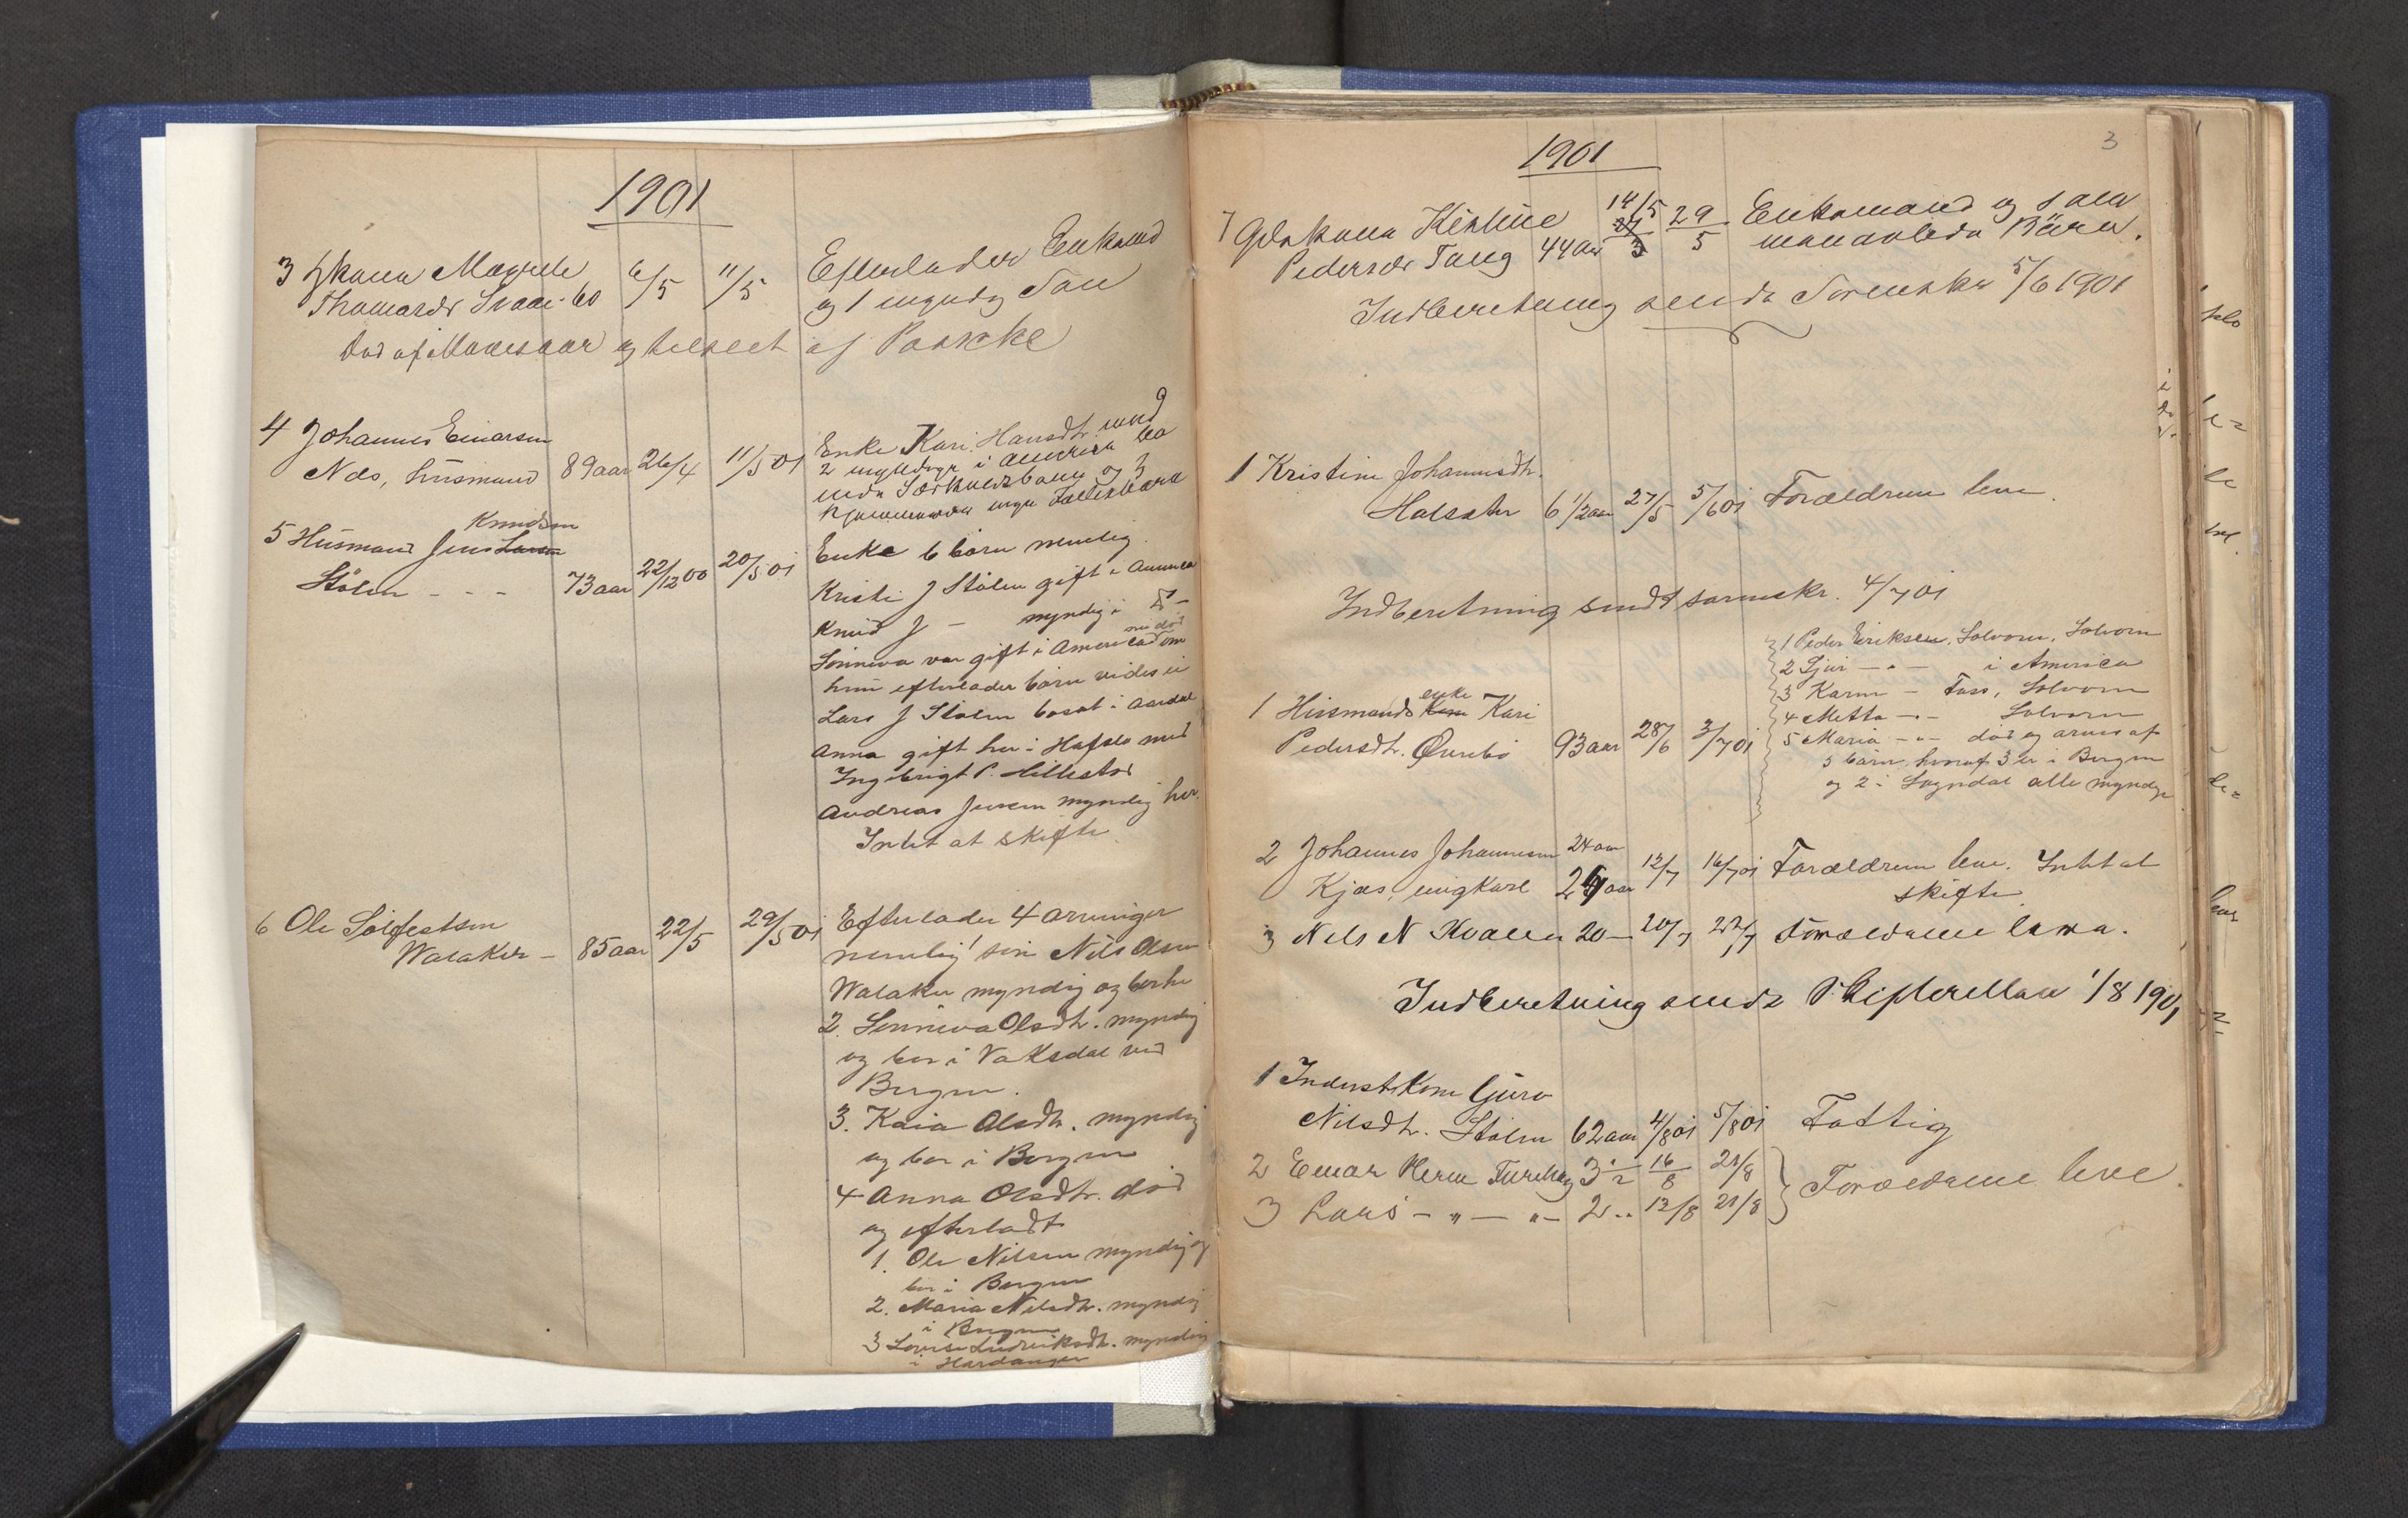 1901
3 Magrete
Thomasdr Svaai 60 6/5 11/5 Efterlader Enkemd
og 1 myndig Søn
Død af og tilseet af Paaske
4 Johannes Einarsen
Næs, husmand 89 aar 26/4 11/5 01 Enke Kari Hansdtr. med
2 i America
og 3
5 Husmand Jens Larsen Knudsen
Stølen - - - 73 aar 22/12 00 20/5 01 Enke 6 børn nemlig
Kristi J Stølen gift i America
Knud J — myndig i —
Sønneva var gift i America nu død om
hun efterlader børn vides ei
Lars J Stølen bosat i Aardal
Anna gift her i Hafslo med
Ingebrigt P. Hillestad
Andreas Jensen myndig her.
Intet at skifte
6 Ole Solfestsen
Walaker - 85 aar 22/5 29/5 01 Efterlader 4 arvinger
nemlig 1 søn Nils Olsen
Walaker myndig og
2. Sønneva Olsdtr. myndig
og bor i Vaksdal ved
Bergen.
3. Kaia Olsdtr. myndig
og bor i Bergen
4 Anna Olsdtr. død
og efterladt
1. Ole Nilsen myndig og
bor i Bergen
2. Maria Nilsdtr. myndig
i Bergen
3 Lovise Ludviksdtr. myndig
i Hardanger
3
1901
7 Kirstine
Pedersdr Tang 44 aar 14/5 27/3 29/5 Enkemand og
Børn.
Indberetning sendt Sorenskr 5/6 1901
1 Kristine Johannesdtr.
6 1/2 aar 27/5 5/6 01 Forældrene leve.
Indberetning sendt sorenskr. 4/7 01
1 Husmands Kone enke Kari
Pedersdtr. Ørrebø 93 aar 28/6 3/7 01
1 Peder Eriksen, Solvorn, Solvorn
2 Gjøri — " — i America
3 Karen — Fass, Solvorn
4 Metta — " — Solvorn
5 Maria — " — død og arves af
5 børn, hvoraf 3 er i Bergen
og 2 i Sogndal alle myndige
2 Johannes Johannesen 24 aar
Kjøs, ungkarl 24 aar 12/7 16/7 01 Forældrene leve. Intet at
skifte
3 Nils N Kvalen 20 — 20/7 27/7 Forældrene leve.
Indberetning sendt Skifteretten 1/8 1901
1 Inderst Kone Guro
Nilsdtr. Stølen 62 aar 4/8 01 5/8 01 Fattig
2 Einar Herm 3 1/2 16/8 21/8
3 Lars — " — " — 2 " 12/8 21/8 Forældrene leve.